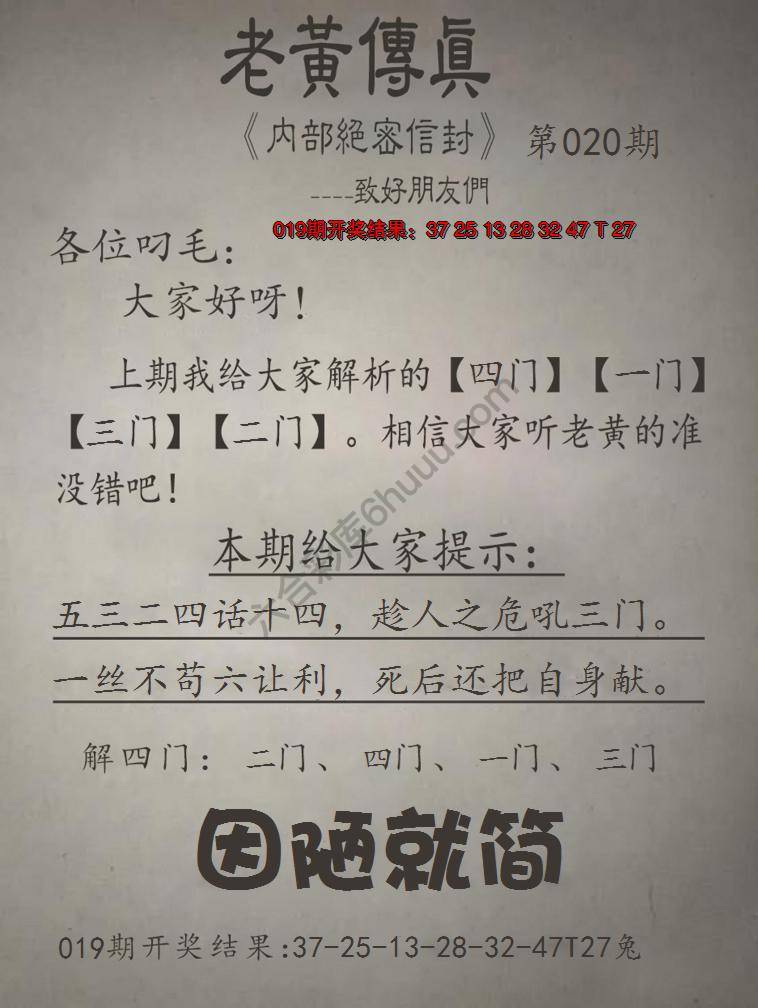 老黃傳眞
《内部絕密信封》 第020期
----致好朋友們
019期开奖结果：37 25 13 28 32 47 T 27
各位叼毛：
大家好呀！
上期我给大家解析的【四门】【一门】
【三门】【二门】。相信大家听老黄的准
没错吧！
六合彩库6huuu.com
本期给大家提示：
五三二四话十四，趁人之危吼三门。
一丝不苟六让利，死后还把自身献。
解四门：二门、四门、一门、三门
因陋就简
019期开奖结果:37-25-13-28-32-47T27兔